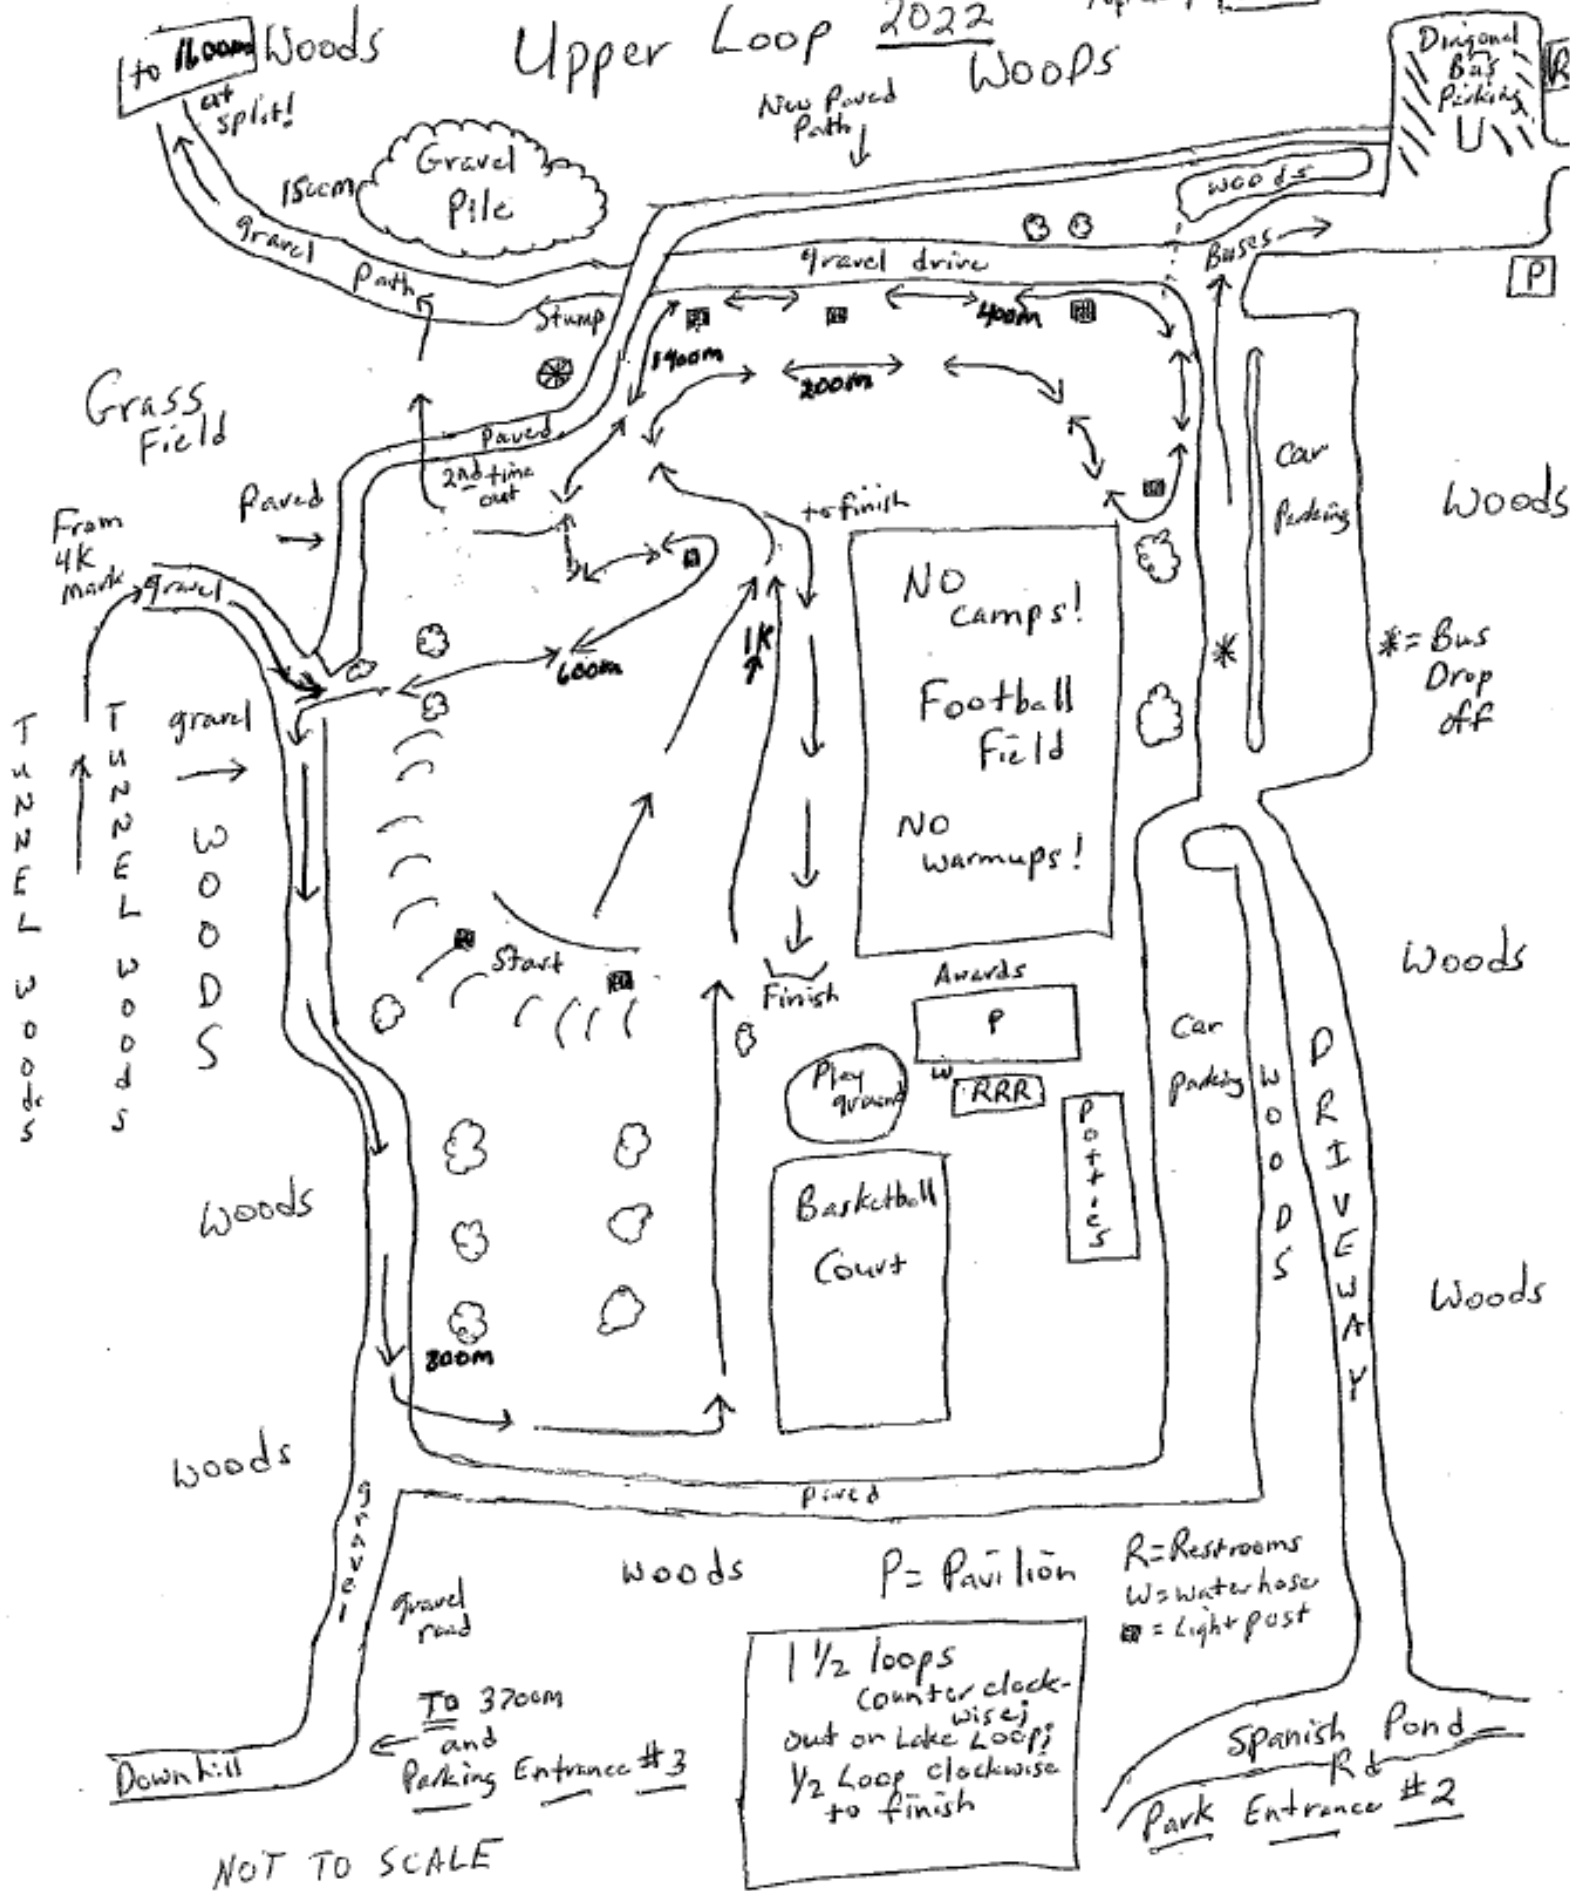 Upper Loop 2022
to 1600m
Woods
at
split!
Woods
New Paved
Path
Diagonal
Bus
Parking
R
1500m
Gravel
Pile
woods
gravel
Path
gravel drive
Buses
P
Stump
400m
1400m
200m
Grass
Field
Paved
2nd time
out
Paved
to finish
Car
Parking
Woods
From
4K
mark
gravel
NO
Camps!
1K
600m
Football
Field
*= Bus
Drop
off
*
TUNNEL WOODS
TUNNEL WOODS
gravel
WOODS
NO
warmups!
Start
Finish
Awards
P
Woods
Play
ground
W
RRR
Potties
Car
Parking
WOODS
DRIVEWAY
Woods
Basketball
Court
Woods
800m
Woods
gravel
Paved
gravel
road
Woods
P = Pavilion
R = Restrooms
W = Water hose
= Light post
TO 3700m
and
Parking Entrance #3
Downhill
1 1/2 loops
Counter clock-
wise;
out on Lake Loop;
1/2 Loop clockwise
to finish
Spanish Pond
Rd
Park Entrance #2
NOT TO SCALE